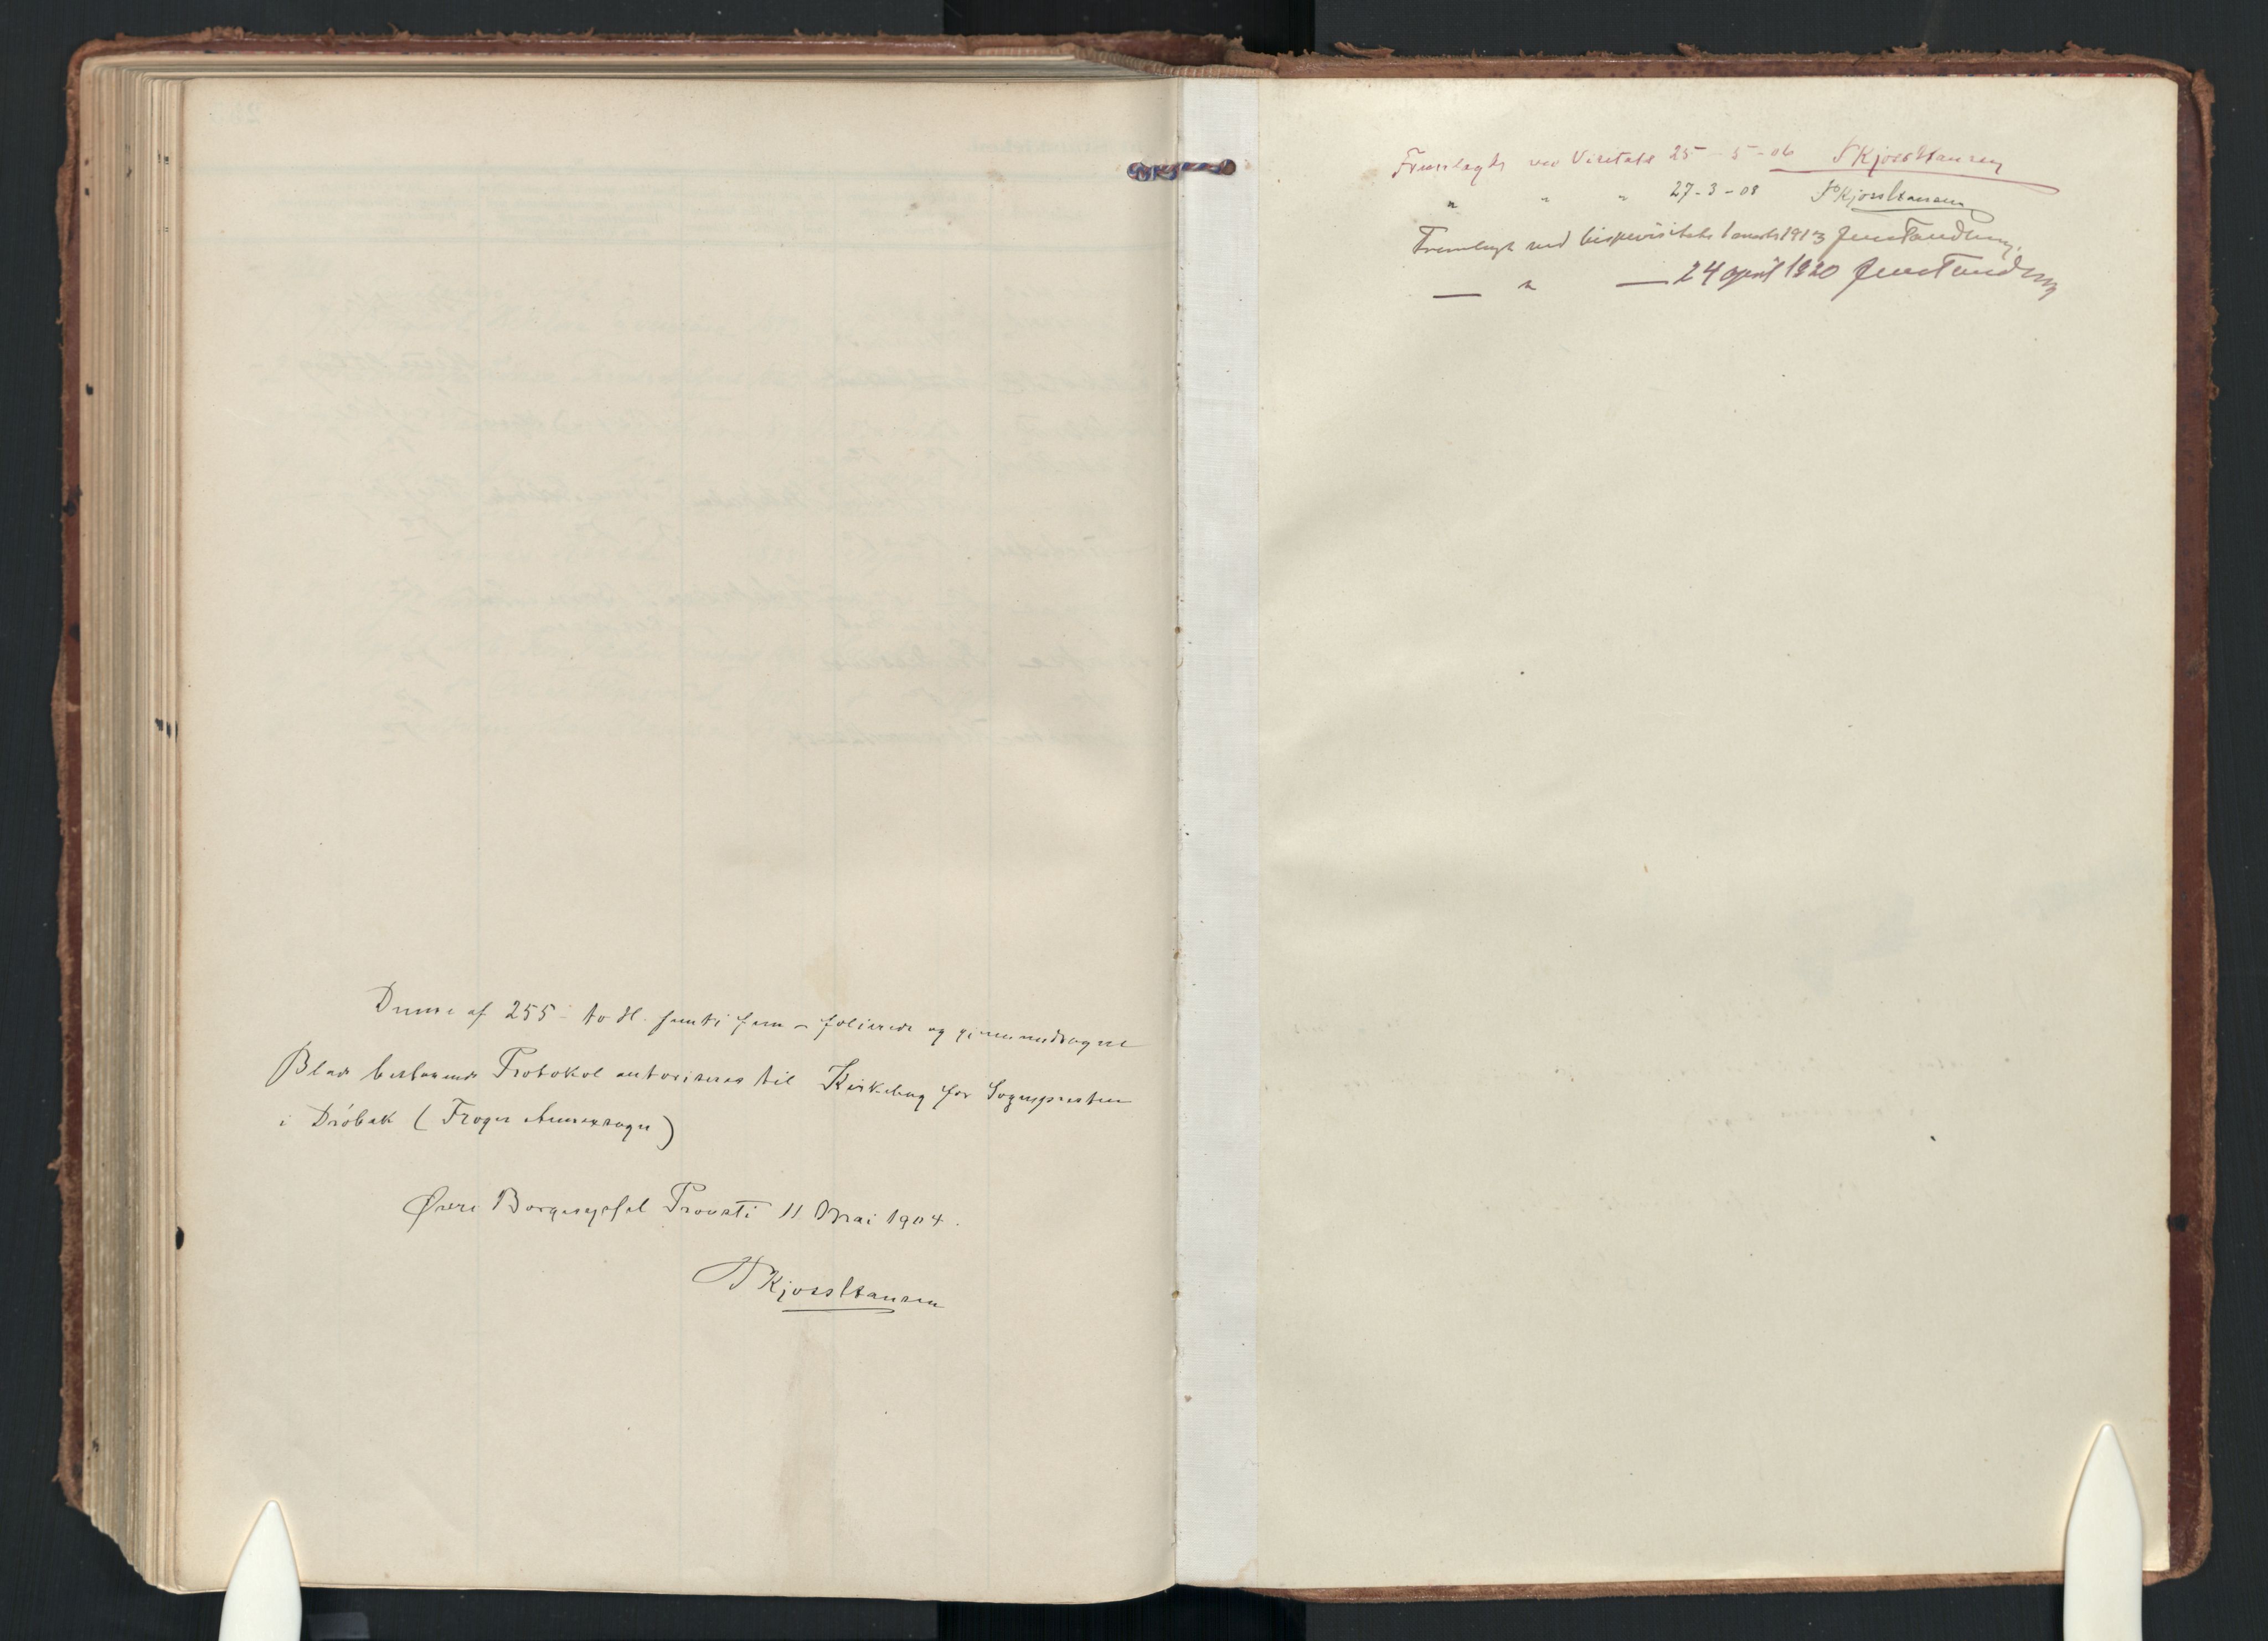 Denne af 255 - to H. femti fem - folierede og gjennemdragne
Blade bestaaende Protokol autoriseres til Kirkebog for Sognepresten
i Drøbak (Frogn Annexsogn)
Øvre Borgesyssel Provsti 11 Mai 1904.
Kjoss Hansen
Fremlagt ved Visitats 25-5-06 Kjoss Hansen
" " " 27-3-08 Kjoss Hansen
Fremlagt ved bispevisitats 1913 Jens Tandberg.
— " — 24 april 1920 Jens Tandberg